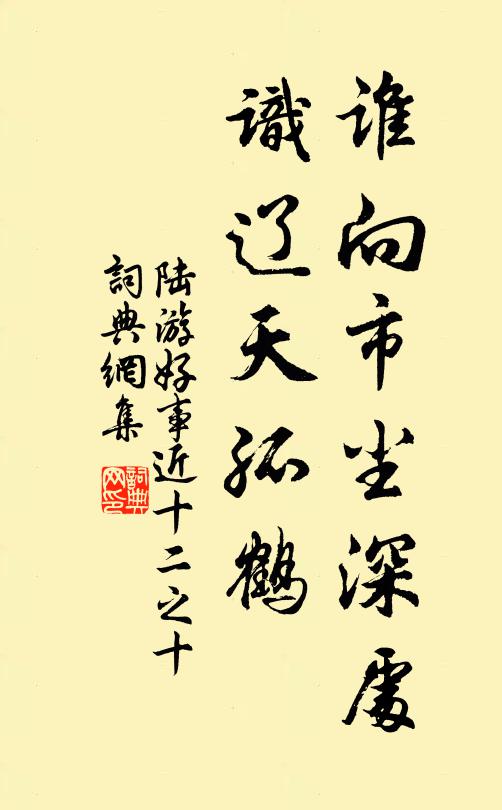 谁向市尘深處
識辽天孤鶴
陆游好事近十二之十
詞典網集
詞典网印